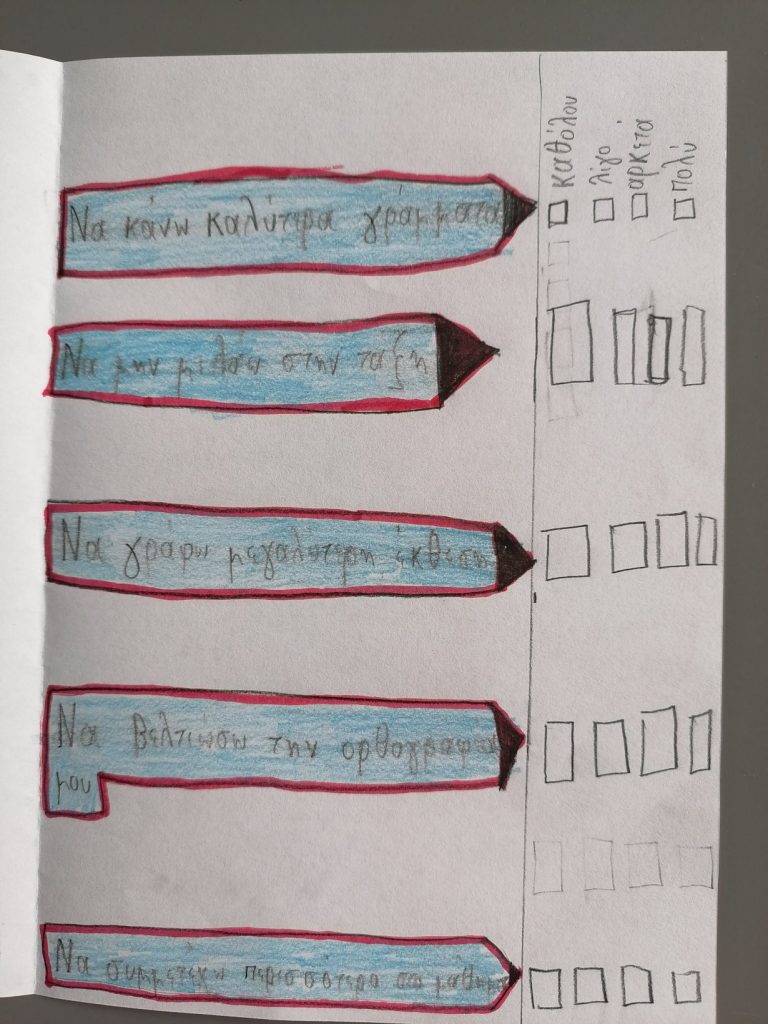 καθόλου
λίγο
αρκετά
πολύ
Να κάνω καλύτερα γράμματα
Να μην μιλάω στην ταξη
Να γράφω μεγαλύτερη έκθεση
Να βελτιώσω την ορθογραφία
μου
Να συμμετέχω περισσότερο στο μάθημα